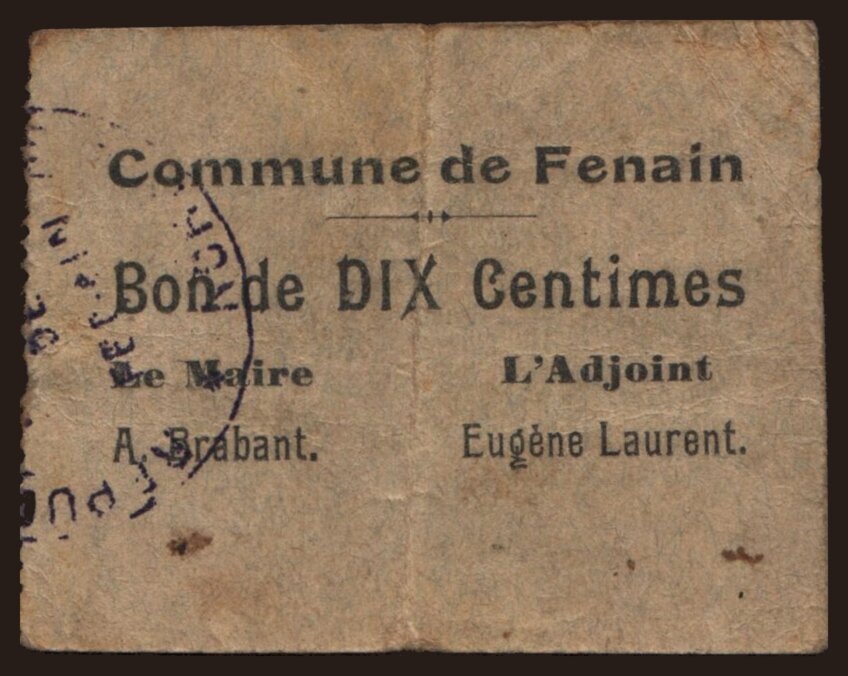 Commune de Fenain
Bon de DIX Centimes
Le Maire
L'Adjoint
A. Brabant.
Eugène Laurent.